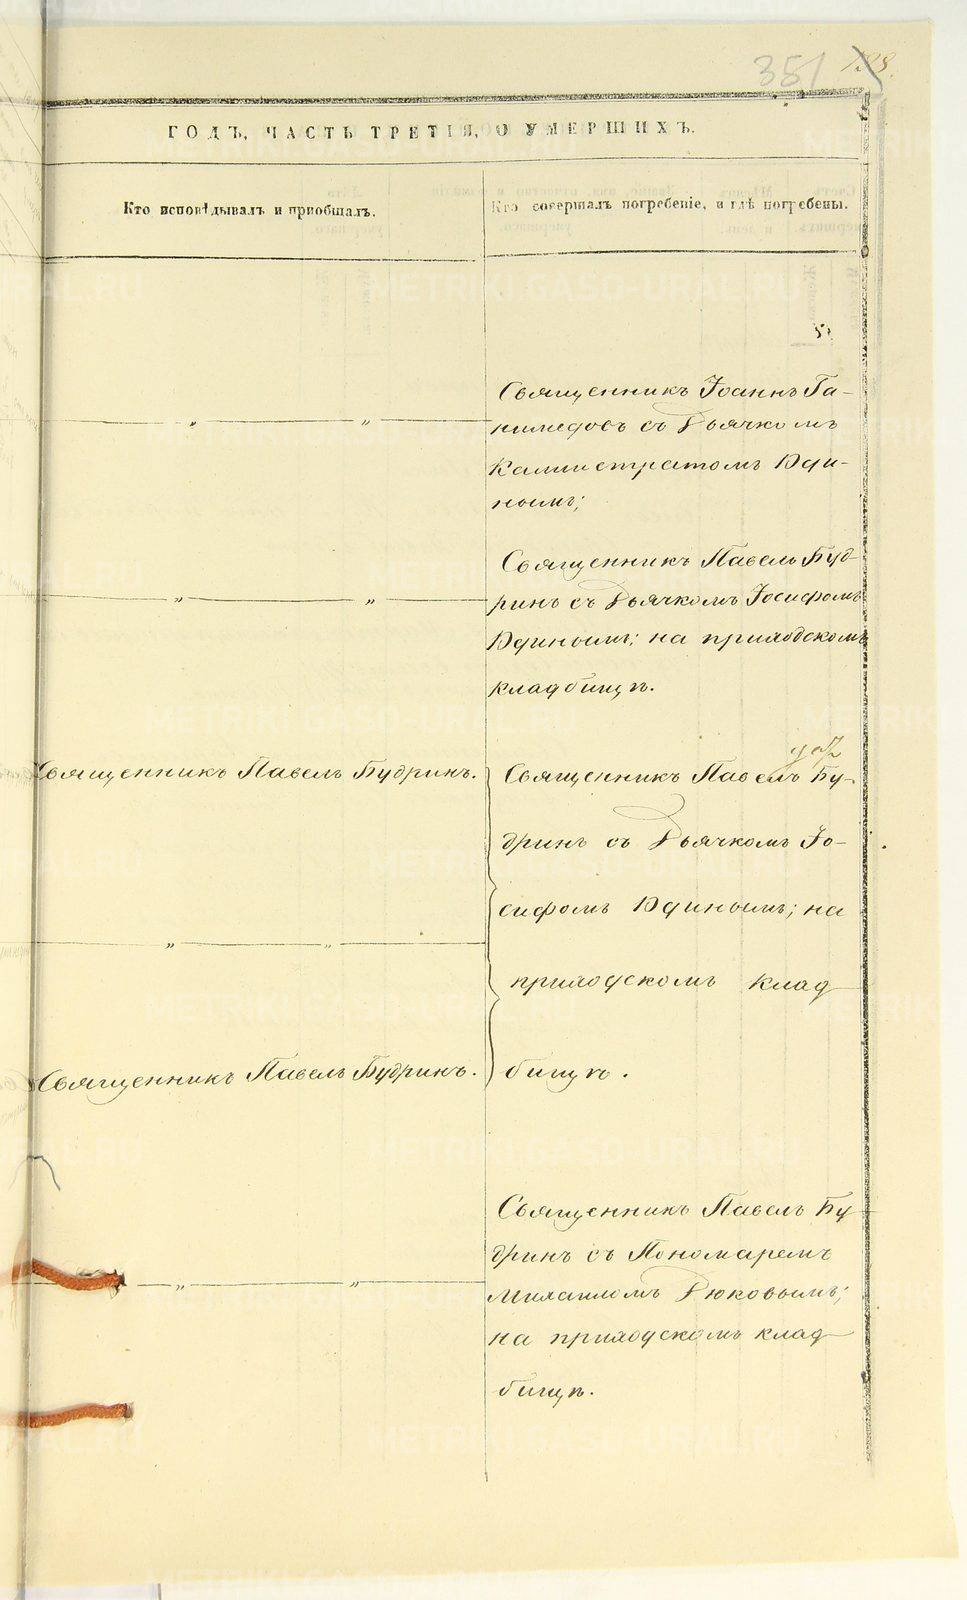 351
ГОДЪ, ЧАСТЬ ТРЕТІЯ, О УМЕРШИХЪ.
Кто исповѣдывалъ и пріобщалъ.
Кто совершалъ погребеніе, и гдѣ погребены.
Священникъ Іоаннъ Га-
нимедовъ съ Дьячкомъ
Каллистратомъ Юди-
нымъ;
Священникъ Павелъ Буд
ринъ съ Дьячкомъ Іосифомъ
Юдинымъ; на приходскомъ
кладбищѣ.
Священникъ Павелъ Будринъ.
Священникъ Павелъ Бу-
дринъ съ Дьячкомъ Іо-
сифомъ Юдинымъ; на
приходскомъ клад
бищѣ.
Священникъ Павелъ Будринъ.
Священникъ Павелъ Бу
дринъ съ Пономаремъ
Михаиломъ Дюковымъ;
на приходскомъ клад
бищѣ.
METRIKI.GASO-URAL.RU